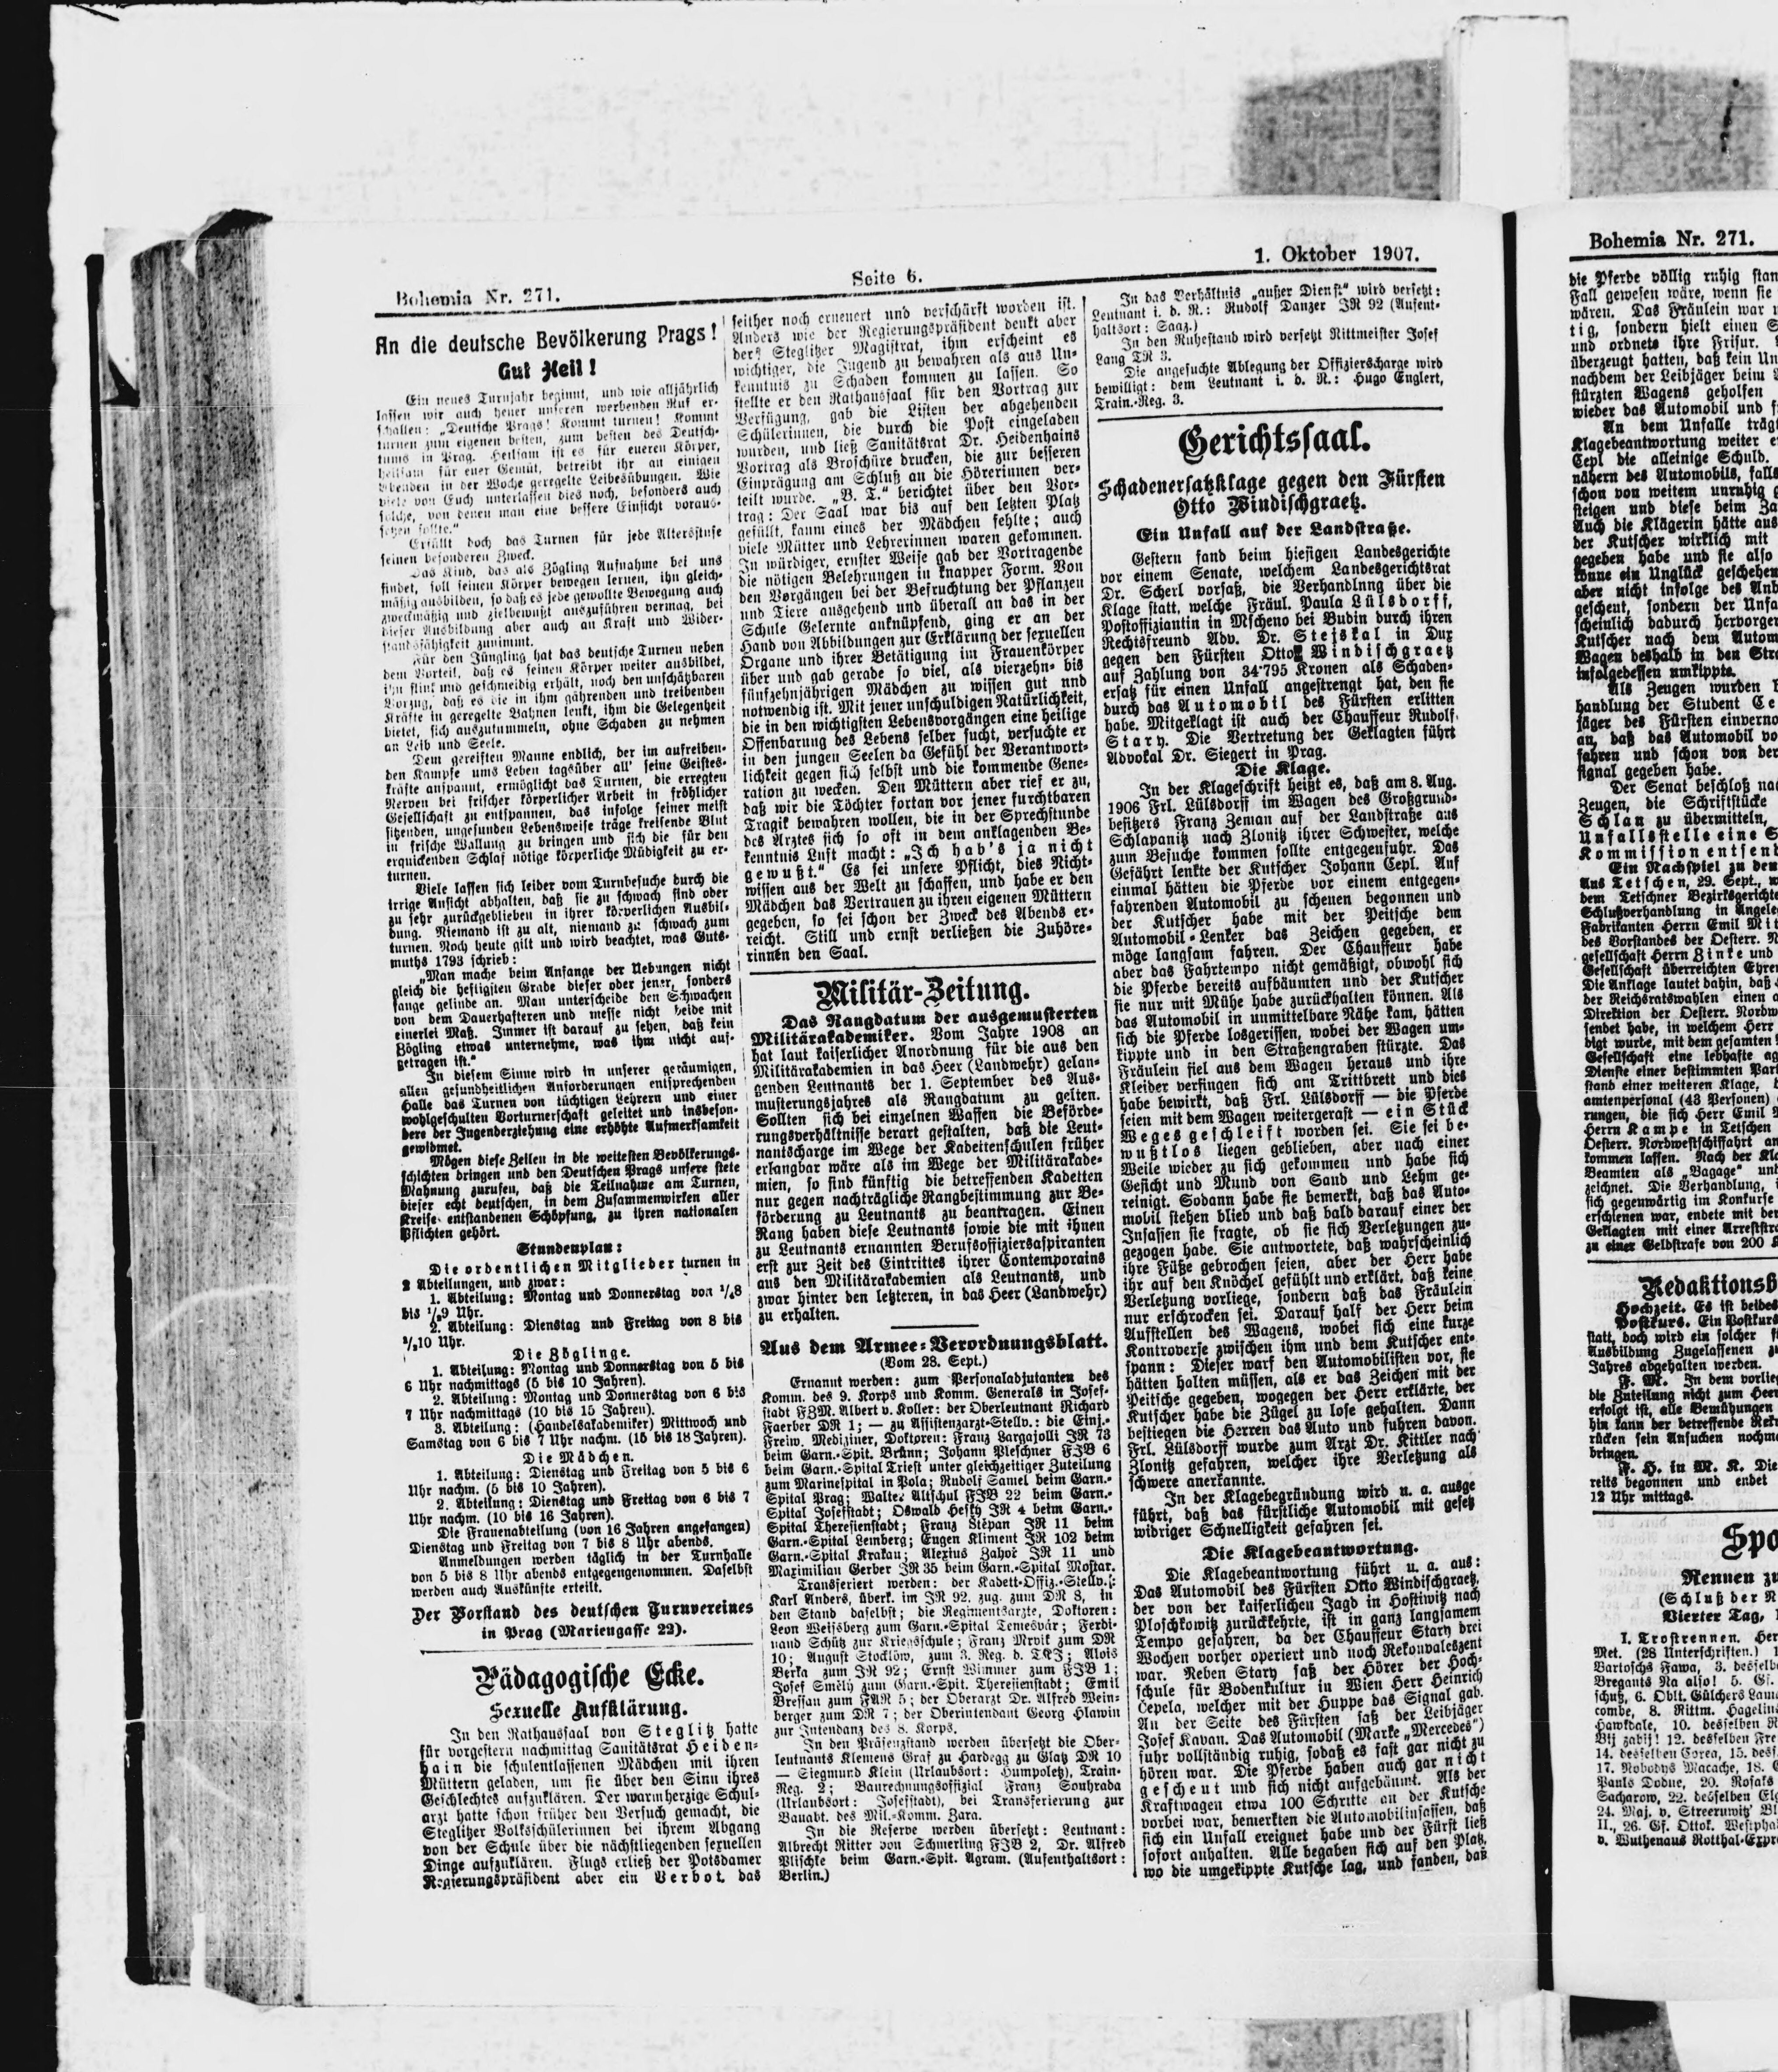 Bohemia Nr. 271.
Seite 6.
1. Oktober 1907.
An die deutsche Bevölkerung Prags!
Gut Heil!
Ein neues Turnjahr beginnt, und wie alljährlich
lassen wir auch heuer unseren werbenden Ruf er-
schallen: „Deutsche Prags! Kommt turnen! Kommt
turnen zum eigenen besten, zum besten des Deutsch-
tums in Prag. Heilsam ist es für eueren Körper,
heilsam für euer Gemüt, betreibt ihr an einigen
Abenden in der Woche geregelte Leibesübungen. Wie
viele von Euch unterlassen dies noch, besonders auch
solche, von denen man eine bessere Einsicht voraus-
setzen sollte.“
Erfüllt doch das Turnen für jede Altersstufe
seinen besonderen Zweck.
Das Kind, das als Zögling Aufnahme bei uns
findet, soll seinen Körper bewegen lernen, ihn gleich-
mäßig ausbilden, so daß es jede gewollte Bewegung auch
zweckmäßig und zielbewußt auszuführen vermag, bei
dieser Ausbildung aber auch an Kraft und Wider-
standsfähigkeit zunimmt.
Für den Jüngling hat das deutsche Turnen neben
dem Vorteil, daß es seinen Körper weiter ausbildet,
ihn flink und geschmeidig erhält, noch den unschätzbaren
Vorzug, daß es die in ihm gährenden und treibenden
Kräfte in geregelte Bahnen lenkt, ihm die Gelegenheit
bietet, sich auszutummeln, ohne Schaden zu nehmen
an Leib und Seele.
Dem gereiften Manne endlich, der im aufreiben-
den Kampfe ums Leben tagsüber all' seine Geistes-
kräfte anspannt, ermöglicht das Turnen, die erregten
Nerven bei frischer körperlicher Arbeit in fröhlicher
Gesellschaft zu entspannen, das infolge seiner meist
sitzenden, ungesunden Lebensweise träge kreisende Blut
in frische Wallung zu bringen und sich die für den
erquickenden Schlaf nötige körperliche Müdigkeit zu er-
turnen.
Viele lassen sich leider vom Turnbesuche durch die
irrige Ansicht abhalten, daß sie zu schwach sind oder
zu sehr zurückgeblieben in ihrer körperlichen Ausbil-
dung. Niemand ist zu alt, niemand zu schwach zum
turnen. Noch heute gilt und wird beachtet, was Guts-
muths 1793 schrieb:
„Man mache beim Anfange der Uebungen nicht
gleich die heftigsten Grade dieser oder jener, sonders
fange gelinde an. Man unterscheide den Schwachen
von dem Dauerhafteren und messe nicht beide mit
einerlei Maß. Immer ist darauf zu sehen, daß kein
Zögling etwas unternehme, was ihm nicht auf-
getragen ist.“
In diesem Sinne wird in unserer geräumigen,
allen gesundheitlichen Anforderungen entsprechenden
Halle das Turnen von tüchtigen Lehrern und einer
wohlgeschulten Vorturnerschaft geleitet und insbeson-
dere der Jugenderziehung eine erhöhte Aufmerksamkeit
gewidmet.
Mögen diese Zeilen in die weitesten Bevölkerungs-
schichten dringen und den Deutschen Prags unsere stete
Mahnung zurufen, daß die Teilnahme am Turnen,
dieser echt deutschen, in dem Zusammenwirken aller
Kreise entstandenen Schöpfung, zu ihren nationalen
Pflichten gehört.
Stundenplan:
Die ordentlichen Mitglieder turnen in
2 Abteilungen, und zwar:
1. Abteilung: Montag und Donnerstag von 1/48
bis 1/29 Uhr.
2. Abteilung: Dienstag und Freitag von 8 bis
1/210 Uhr.
Die Zöglinge.
1. Abteilung: Montag und Donnerstag von 5 bis
6 Uhr nachmittags (5 bis 10 Jahren).
2. Abteilung: Montag und Donnerstag von 6 bis
7 Uhr nachmittags (10 bis 15 Jahren).
3. Abteilung: (Handelsakademiker) Mittwoch und
Samstag von 6 bis 7 Uhr nachm. (15 bis 18 Jahren).
Die Mädchen.
1. Abteilung: Dienstag und Freitag von 5 bis 6
Uhr nachm. (5 bis 10 Jahren).
2. Abteilung: Dienstag und Freitag von 6 bis 7
Uhr nachm. (10 bis 16 Jahren).
Die Frauenabteilung (von 16 Jahren angefangen)
Dienstag und Freitag von 7 bis 8 Uhr abends.
Anmeldungen werden täglich in der Turnhalle
von 5 bis 8 Uhr abends entgegengenommen. Daselbst
werden auch Auskünfte erteilt.
Der Vorstand des deutschen Turnvereines
in Prag (Mariengasse 22).
Pädagogische Ecke.
Sexuelle Aufklärung.
In den Rathaussaal von Steglitz hatte
für vorgestern nachmittag Sanitätsrat Heiden-
hain die schulentlassenen Mädchen mit ihren
Müttern geladen, um sie über den Sinn ihres
Geschlechtes aufzuklären. Der warmherzige Schul-
arzt hatte schon früher den Versuch gemacht, die
Steglitzer Volksschülerinnen bei ihrem Abgang
von der Schule über die nächstliegenden sexuellen
Dinge aufzuklären. Flugs erließ der Potsdamer
Regierungspräsident aber ein Verbot, das
seither noch erneuert und verschärft worden ist.
Anders wie der Regierungspräsident denkt aber
der Steglitzer Magistrat, ihm erscheint es
wichtiger, die Jugend zu bewahren als aus Un-
kenntnis zu Schaden kommen zu lassen. So
stellte er den Rathaussaal für den Vortrag zur
Verfügung, gab die Listen der abgehenden
Schülerinnen, die durch die Post eingeladen
wurden, und ließ Sanitätsrat Dr. Heidenhains
Vortrag als Broschüre drucken, die zur besseren
Einprägung am Schluß an die Hörerinnen ver-
teilt wurde. „B. T.“ berichtet über den Vor-
trag: Der Saal war bis auf den letzten Platz
gefüllt, kaum eines der Mädchen fehlte; auch
viele Mütter und Lehrerinnen waren gekommen.
In würdiger, ernster Weise gab der Vortragende
die nötigen Belehrungen in knapper Form. Von
den Vorgängen bei der Befruchtung der Pflanzen
und Tiere ausgehend und überall an das in der
Schule Gelernte anknüpfend, ging er an der
Hand von Abbildungen zur Erklärung der sexuellen
Organe und ihrer Betätigung im Frauenkörper
über und gab gerade so viel, als vierzehn- bis
fünfzehnjährigen Mädchen zu wissen gut und
notwendig ist. Mit jener unschuldigen Natürlichkeit,
die in den wichtigsten Lebensvorgängen eine heilige
Offenbarung des Lebens selber sucht, versuchte er
in den jungen Seelen da Gefühl der Verantwort-
lichkeit gegen sich selbst und die kommende Gene-
ration zu wecken. Den Müttern aber rief er zu,
daß wir die Töchter fortan vor jener furchtbaren
Tragik bewahren wollen, die in der Sprechstunde
des Arztes sich so oft in dem anklagenden Be-
kenntnis Luft macht: „Ich hab's ja nicht
gewußt.“ Es sei unsere Pflicht, dies Nicht-
wissen aus der Welt zu schaffen, und habe er den
Mädchen das Vertrauen zu ihren eigenen Müttern
gegeben, so sei schon der Zweck des Abends er-
reicht. Still und ernst verließen die Zuhöre-
rinnen den Saal.
Militär-Zeitung.
Das Rangdatum der ausgemusterten
Militärakademiker. Vom Jahre 1908 an
hat laut kaiserlicher Anordnung für die aus den
Militärakademien in das Heer (Landwehr) gelan-
genden Leutnants der 1. September des Aus-
musterungsjahres als Rangdatum zu gelten.
Sollten sich bei einzelnen Waffen die Beförde-
rungsverhältnisse derart gestalten, daß die Leut-
nantscharge im Wege der Kadettenschulen früher
erlangbar wäre als im Wege der Militärakade-
mien, so sind künftig die betreffenden Kadetten
nur gegen nachträgliche Rangbestimmung zur Be-
förderung zu Leutnants zu beantragen. Einen
Rang haben diese Leutnants sowie die mit ihnen
zu Leutnants ernannten Berufsoffiziersaspiranten
erst zur Zeit des Eintrittes ihrer Contemporains
aus den Militärakademien als Leutnants, und
zwar hinter den letzteren, in das Heer (Landwehr)
zu erhalten.
Aus dem Armee-Verordnungsblatt.
(Vom 28. Sept.)
Ernannt werden: zum Personaladjutanten des
Komm. des 9. Korps und Komm. Generals in Josef-
stadt FZM. Albert v. Koller: der Oberleutnant Richard
Faerber DR 1; — zu Assistenzarzt-Stellv.: die Einj.-
Freiw. Mediziner, Doktoren: Franz Largajolli JR 73
beim Garn.-Spit. Brünn; Johann Pleschner FJB 6
beim Garn.-Spital Triest unter gleichzeitiger Zuteilung
zum Marinespital in Pola; Rudolf Samel beim Garn.-
Spital Prag; Walter Altschul FJB 22 beim Garn.-
Spital Josefstadt; Oswald Hefty JR 4 beim Garn.-
Spital Theresienstadt; Franz Stěpan JR 11 beim
Garn.-Spital Lemberg; Eugen Kliment JR 102 beim
Garn.-Spital Krakau; Alexius Zahoř JR 11 und
Maximilian Gerber JR 35 beim Garn.-Spital Mostar.
Transferiert werden: der Kadett-Offiz.-Stellv.:
Karl Anders, überk. im JR 92, zug. zum DR 8, in
den Stand daselbst; die Regimentsärzte, Doktoren:
Leon Weissberg zum Garn.-Spital Temesvár; Ferdi-
nand Schütz zur Kriegsschule; Franz Mrvik zum DR
10; August Stocklöw, zum 3. Reg. d. TKJ; Alois
Berka zum JR 92; Ernst Wimmer zum FJB 1;
Josef Smělý zum Garn.-Spit. Theresienstadt; Emil
Bressan zum FAR 5; der Oberarzt Dr. Alfred Wein-
berger zum DR 7; der Oberintendant Georg Hlawin
zur Intendanz des 8. Korps.
In den Präsenzstand werden übersetzt die Ober-
leutnants Klemens Graf zu Hardegg zu Glatz DR 10
— Siegmund Klein (Urlaubsort: Humpoletz), Train-
Reg. 2; Baurechnungsoffizial Franz Souhrada
(Urlaubsort: Josefstadt), bei Transferierung zur
Bauabt. des Mil.-Komm. Zara.
In die Reserve werden übersetzt: Leutnant:
Albrecht Ritter von Schmerling FJB 2, Dr. Alfred
Plischke beim Garn.-Spit. Agram. (Aufenthaltsort:
Berlin.)
In das Verhältnis „außer Dienst“ wird versetzt:
Leutnant i. d. R.: Rudolf Danzer JR 92 (Aufent-
haltsort: Saaz.)
In den Ruhestand wird versetzt Rittmeister Josef
Lang TR 3.
Die angesuchte Ablegung der Offizierscharge wird
bewilligt: dem Leutnant i. d. R.: Hugo Englert,
Train.-Reg. 3.
Gerichtssaal.
Schadenersatzklage gegen den Fürsten
Otto Windischgraetz.
Ein Unfall auf der Landstraße.
Gestern fand beim hiesigen Landesgerichte
vor einem Senate, welchem Landesgerichtsrat
Dr. Scherl vorsaß, die Verhandlnng über die
Klage statt, welche Fräul. Paula Lülsdorff,
Postoffiziantin in Mscheno bei Budin durch ihren
Rechtsfreund Adv. Dr. Stejskal in Dux
gegen den Fürsten Otto Windischgraetz
auf Zahlung von 34·795 Kronen als Schaden-
ersatz für einen Unfall angestrengt hat, den sie
durch das Automobil des Fürsten erlitten
habe. Mitgeklagt ist auch der Chauffeur Rudolf
Stary. Die Vertretung der Geklagten führt
Advokat Dr. Siegert in Prag.
Die Klage.
In der Klageschrift heißt es, daß am 8. Aug.
1906 Frl. Lülsdorff im Wagen des Großgrund-
besitzers Franz Zeman auf der Landstraße aus
Schlapanitz nach Zlonitz ihrer Schwester, welche
zum Besuche kommen sollte entgegenfuhr. Das
Gefährt lenkte der Kutscher Johann Cepl. Auf
einmal hätten die Pferde vor einem entgegen-
fahrenden Automobil zu scheuen begonnen und
der Kutscher habe mit der Peitsche dem
Automobil-Lenker das Zeichen gegeben, er
möge langsam fahren. Der Chauffeur habe
aber das Fahrtempo nicht gemäßigt, obwohl sich
die Pferde bereits aufbäumten und der Kutscher
sie nur mit Mühe habe zurückhalten können. Als
das Automobil in unmittelbare Nähe kam, hätten
sich die Pferde losgerissen, wobei der Wagen um-
kippte und in den Straßengraben stürzte. Das
Fräulein fiel aus dem Wagen heraus und ihre
Kleider verfingen sich am Trittbrett und dies
habe bewirkt, daß Frl. Lülsdorff — die Pferde
seien mit dem Wagen weitergerast — ein Stück
Weges geschleift worden sei. Sie sei be-
wußtlos liegen geblieben, aber nach einer
Weile wieder zu sich gekommen und habe sich
Gesicht und Mund von Sand und Lehm ge-
reinigt. Sodann habe sie bemerkt, daß das Auto-
mobil stehen blieb und daß bald darauf einer der
Insassen sie fragte, ob sie sich Verletzungen zu-
gezogen habe. Sie antwortete, daß wahrscheinlich
ihre Füße gebrochen seien, aber der Herr habe
ihr auf den Knöchel gefühlt und erklärt, daß keine
Verletzung vorliege, sondern daß das Fräulein
nur erschrocken sei. Darauf half der Herr beim
Aufstellen des Wagens, wobei sich eine kurze
Kontroverse zwischen ihm und dem Kutscher ent-
spann: Dieser warf den Automobilisten vor, sie
hätten halten müssen, als er das Zeichen mit der
Peitsche gegeben, wogegen der Herr erklärte, der
Kutscher habe die Zügel zu lose gehalten. Dann
bestiegen die Herren das Auto und fuhren davon.
Frl. Lülsdorff wurde zum Arzt Dr. Kittler nach
Zlonitz gefahren, welcher ihre Verletzung als
schwere anerkannte.
In der Klagebegründung wird u. a. ausge
führt, daß das fürstliche Automobil mit gesetz
widriger Schnelligkeit gefahren sei.
Die Klagebeantwortung.
Die Klagebeantwortung führt u. a. aus:
Das Automobil des Fürsten Otto Windischgraetz,
der von der kaiserlichen Jagd in Hostiwitz nach
Ploschkowitz zurückkehrte, ist in ganz langsamem
Tempo gefahren, da der Chauffeur Stary drei
Wochen vorher operiert und noch Rekonvaleszent
war. Neben Stary saß der Hörer der Hoch-
schule für Bodenkultur in Wien Herr Heinrich
Cepela, welcher mit der Huppe das Signal gab.
An der Seite des Fürsten saß der Leibjäger
Josef Kavan. Das Automobil (Marke „Mercedes“)
fuhr vollständig ruhig, sodaß es fast gar nicht zu
hören war. Die Pferde haben auch gar nicht
gescheut und sich nicht aufgebäumt. Als der
Kraftwagen etwa 100 Schritte an der Kutsche
vorbei war, bemerkten die Automobilinsassen, daß
sich ein Unfall ereignet habe und der Fürst ließ
sofort anhalten. Alle begaben sich auf den Platz,
wo die umgekippte Kutsche lag, und fanden, daß
Bohemia Nr. 271.
die Pferde völlig ruhig
Fall gewesen wäre, wenn sie
wären. Das Fräulein war
tig, sondern hielt einen
und ordnete ihre Frisur.
überzeugt hatten, daß kein
nachdem der Leibjäger beim
stürzten Wagens geholfen
wieder das Automobil und
An dem Unfalle trägt
Klagebeantwortung weiter
Cepl die alleinige Schuld.
nähern des Automobils, falls
schon von weitem unruhig
steigen und diese beim
Auch die Klägerin hätte
der Kutscher wirklich mit
gegeben habe und sie also
könne ein Unglück geschehen
aber nicht infolge des
gescheut, sondern der
scheinlich dadurch
Kutscher nach dem
Wagen deshalb in den
infolgedessen umkippte.
Als Zeugen wurden
handlung der Student
jäger des Fürsten
an, daß das Automobil
fahren und schon von der
signal gegeben habe.
Der Senat beschloß
Zeugen, die Schriftstücke
Schlan zu übermitteln,
Unfallsstelle eine
Kommission
Ein Nachspiel zu den
Aus Tetschen, 29. Sept.,
dem Tetschner
Schlußverhandlung in
Fabrikanten Herrn Emil
des Vorstandes der Oesterr.
gesellschaft Herrn Zinke und
Gesellschaft überreichten
Die Anklage lautet dahin, daß
der Reichsratswahlen einen
Direktion der Oesterr.
sendet habe, in welchem Herr
digt wurde, mit dem gesamten
Gesellschaft eine lebhafte
Dienste einer bestimmten
stand einer weiteren Klage,
amtenpersonal (43 Personen)
rungen, die sich Herr Emil
Herrn Kampe in Tetschen
Oesterr. Nordwestschiffahrt
kommen lassen. Nach der
Beamten als „Bagage“
zeichnet. Die Verhandlung,
sich gegenwärtig im Konkurse
erschienen war, endete mit der
Geklagten mit einer
zu einer Geldstrafe von 200
Hochzeit. Es ist
Postkurs. Ein
statt, doch wird ein solcher
Ausbildung Zugelassenen
Jahres abgehalten werden.
F. M. In dem
die Zuteilung nicht zum
erfolgt ist, alle Bemühungen
hin kann der betreffende
rücken sein Ansuchen
bringen.
F. H. in M. K. Die
reits begonnen und endet
12 Uhr mittags.
Rennen
(Schluß der
Vierter Tag,
I. Trostrennen.
Met. (28 Unterschriften.)
Bartoschs Fawa, 3.
Bregants Na also! 5. Gf.
schuß, 6. Oblt. Gülchers
combe, 8. Rittm.
Hawkdale, 10. desselben
Bij zabij! 12. desselben
14. desselben Corea, 15.
17. Nobodys Macache, 18.
Pauls Dodue, 20.
Sacharow, 22. desselben
24. Maj. v. Streeruwitz'
II., 26. Gf. Ottok.
v. Wuthenaus